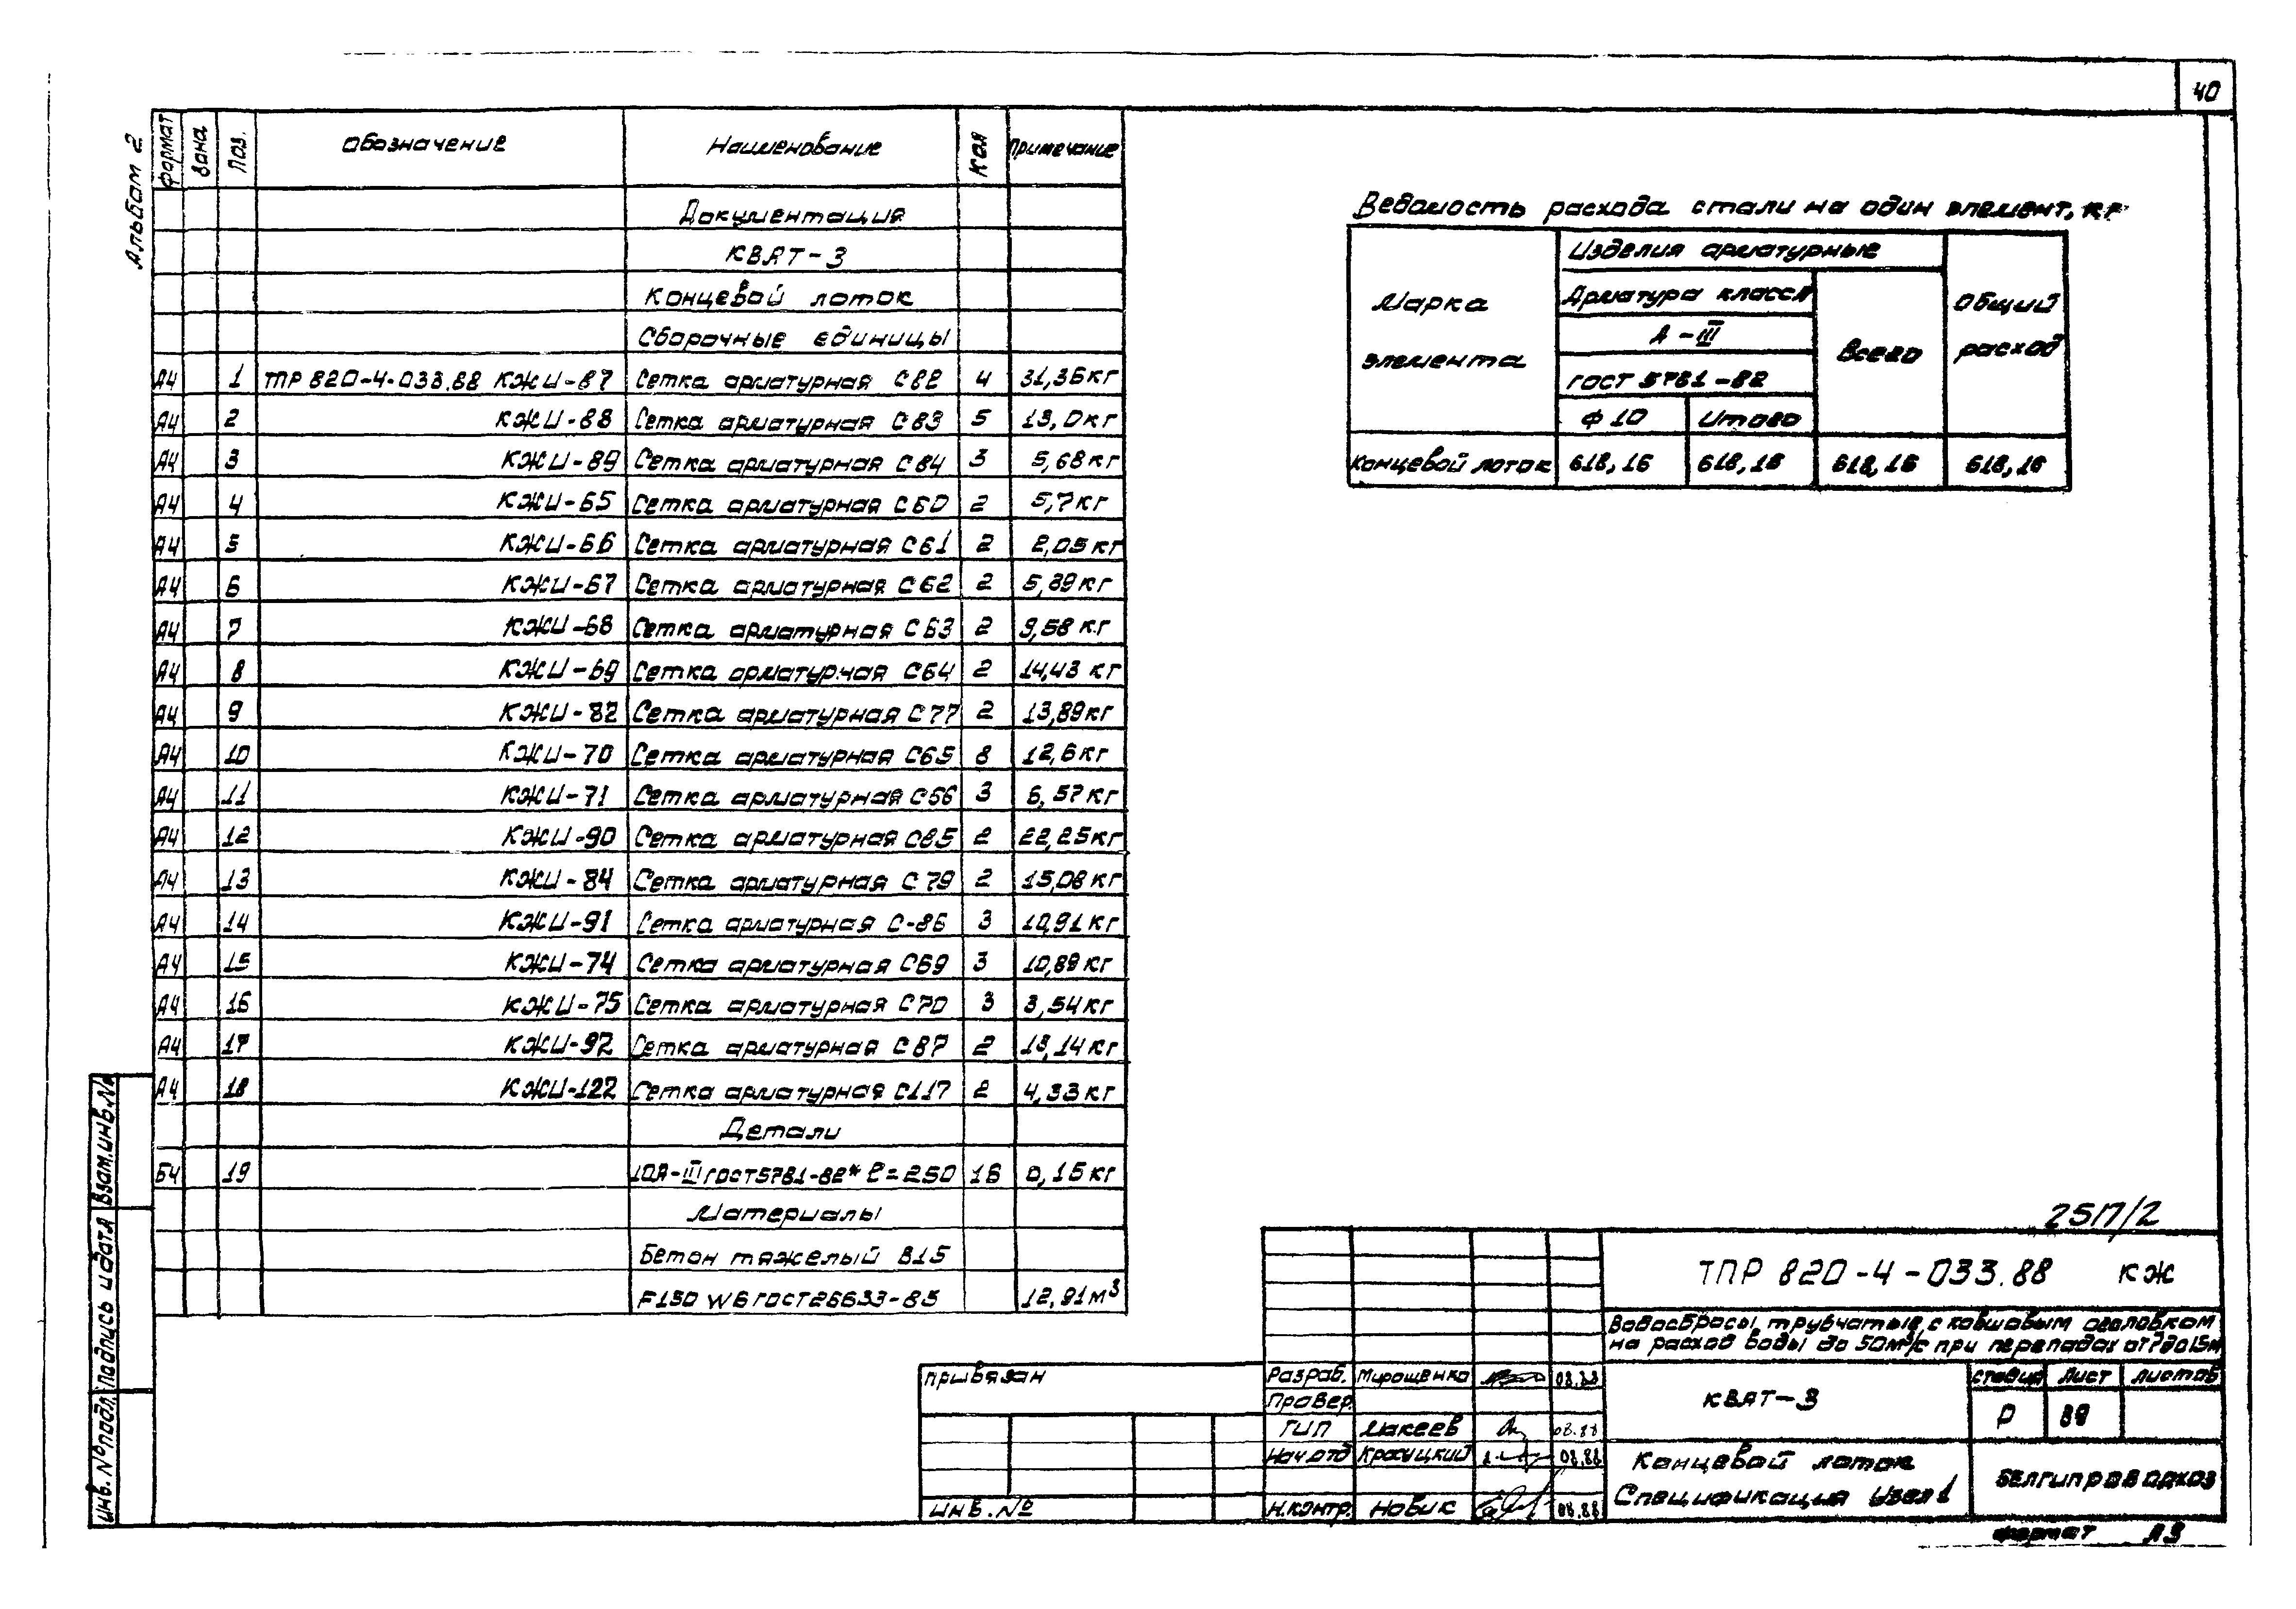 40
Альбом 2
Формат Зона Поз. Обозначение Наименование Кол Примечание
Документация
КВЯТ-3
Концевой лоток
Сборочные единицы
А4 1 ТПР 820-4-033.88 КЖИ-87 Сетка арматурная С82 4 31,36кг
А4 2 КЖИ-88 Сетка арматурная С83 5 13,0кг
А4 3 КЖИ-89 Сетка арматурная С84 3 5,68кг
А4 4 КЖИ-65 Сетка арматурная С60 2 5,7кг
А4 5 КЖИ-66 Сетка арматурная С61 2 2,05кг
А4 6 КЖИ-67 Сетка арматурная С62 2 5,89кг
А4 7 КЖИ-68 Сетка арматурная С63 2 9,58кг
А4 8 КЖИ-69 Сетка арматурная С64 2 14,43 кг
А4 9 КЖИ-82 Сетка арматурная С77 2 13,89кг
А4 10 КЖИ-70 Сетка арматурная С65 8 12,6кг
А4 11 КЖИ-71 Сетка арматурная С66 3 6,57кг
А4 12 КЖИ-90 Сетка арматурная С85 2 22,25кг
А4 13 КЖИ-84 Сетка арматурная С79 2 15,08кг
А4 14 КЖИ-91 Сетка арматурная С-86 3 10,91кг
А4 15 КЖИ-74 Сетка арматурная С69 3 10,89кг
А4 16 КЖИ-75 Сетка арматурная С70 3 3,54кг
А4 17 КЖИ-92 Сетка арматурная С87 2 13,14кг
А4 18 КЖИ-122 Сетка арматурная С117 2 4,33кг
Детали
БЧ 19 10А-III ГОСТ5781-82* ℓ=250 16 0,15кг
Материалы
Бетон тяжелый В15
F150 W6 ГОСТ26633-85 12,91м³
Ведомость расхода стали на один элемент, кг
Марка элемента
Изделия арматурные
Арматура класса
А-III
ГОСТ 5781-82
Ф 10 Итого
Всего
Общий расход
Концевой лоток 618,16 618,16 618,16 618,16
2517/2
ТПР 820-4-033.88 КЖ
Водосбросы трубчатые с ковшовым оголовком
на расход воды до 50м³/с при перепадах от 7 до 15м
Привязан
Инв. №
Разраб. Мирощенко 08.88
Провер.
ГИП Макеев 08.88
Нач.отд Красуцкий 08.88
Н.контр. Новик 08.88
КВЯТ-3
Стадия Лист Листов
Р 39
Концевой лоток
Спецификация Узел 1
Белгипроводхоз
Формат А3
Инв. № подл. Подпись и дата Взам.инв.№